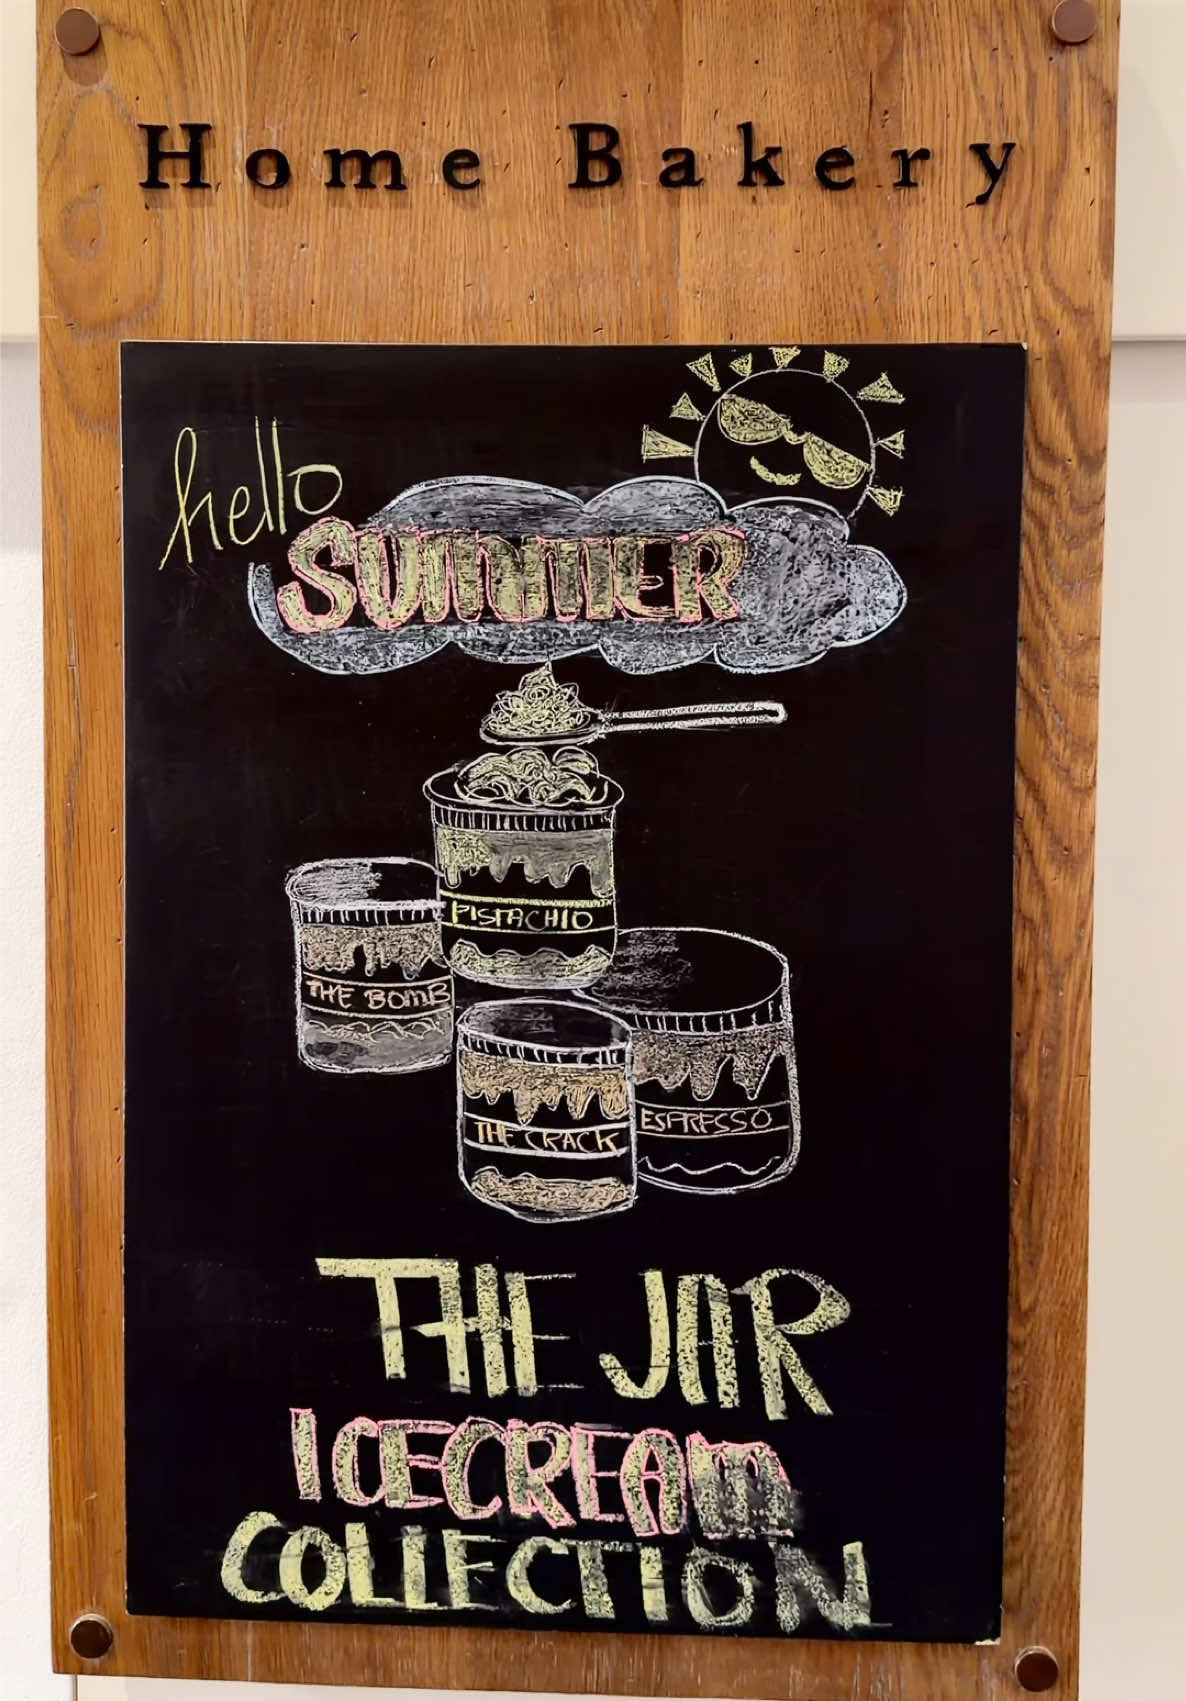 Home Bakery
hello
SUMMER
PISTACHIO
THE BOMB
THE CRACK
ESPRESSO
THE JAR
ICECREAM
COLLECTION